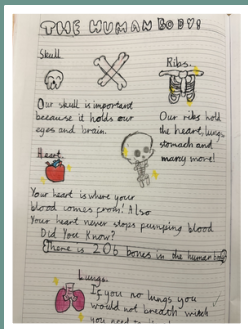 THE HUMAN BODY!
Skull
Our skull is important
because it holds our
eyes and brain.
Ribs.
Our ribs hold
the heart, lungs,
stomach and
many more!
Heart
Your heart is where your
blood comes from! Also
Your heart never stops pumping blood
Did You Know?
There is 206 bones in the human body
Lungs.
If you no lungs you
would not breath wich
you need to